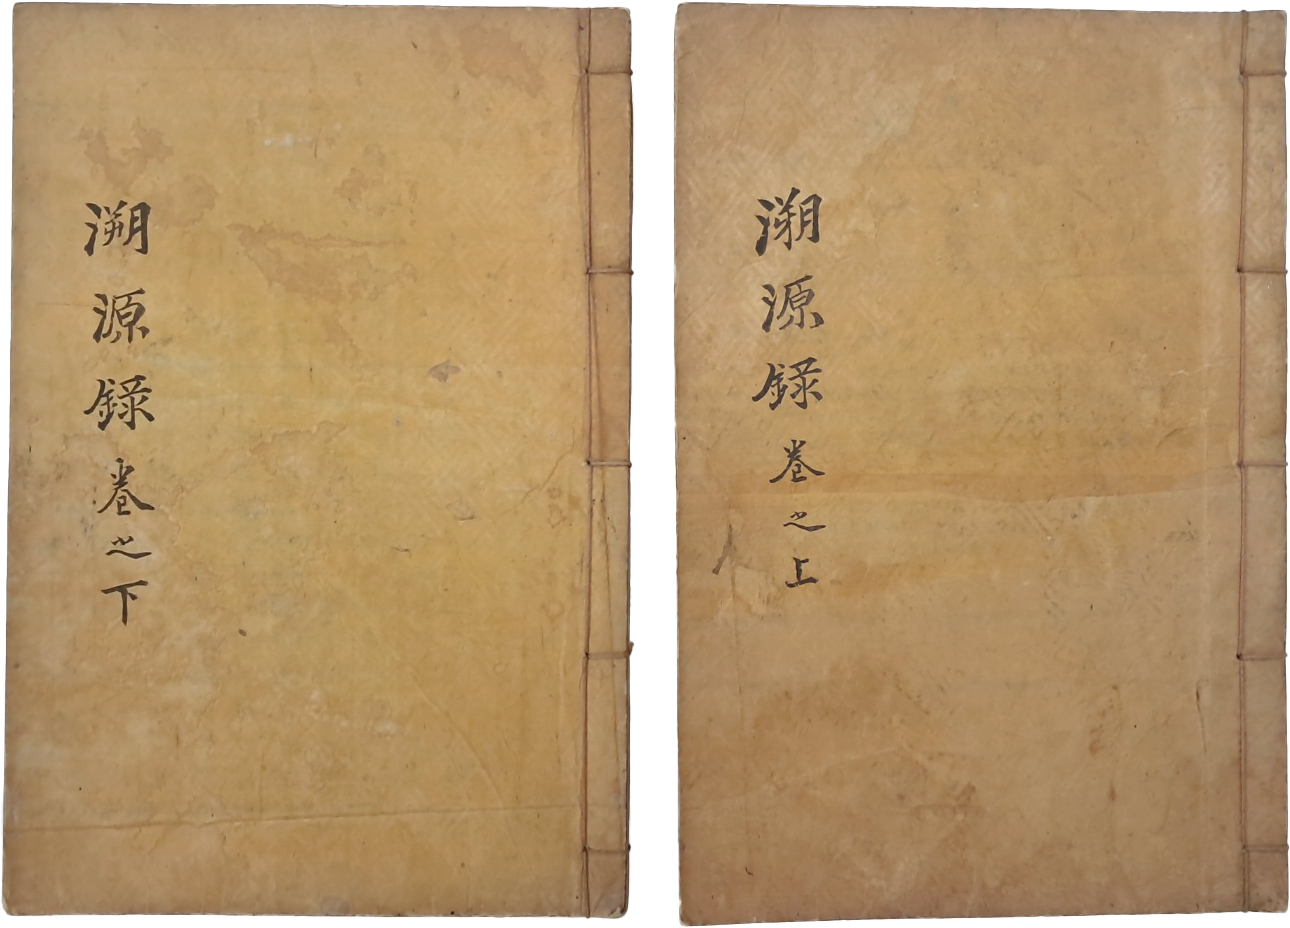 溯源錄卷之上
溯源錄卷之下